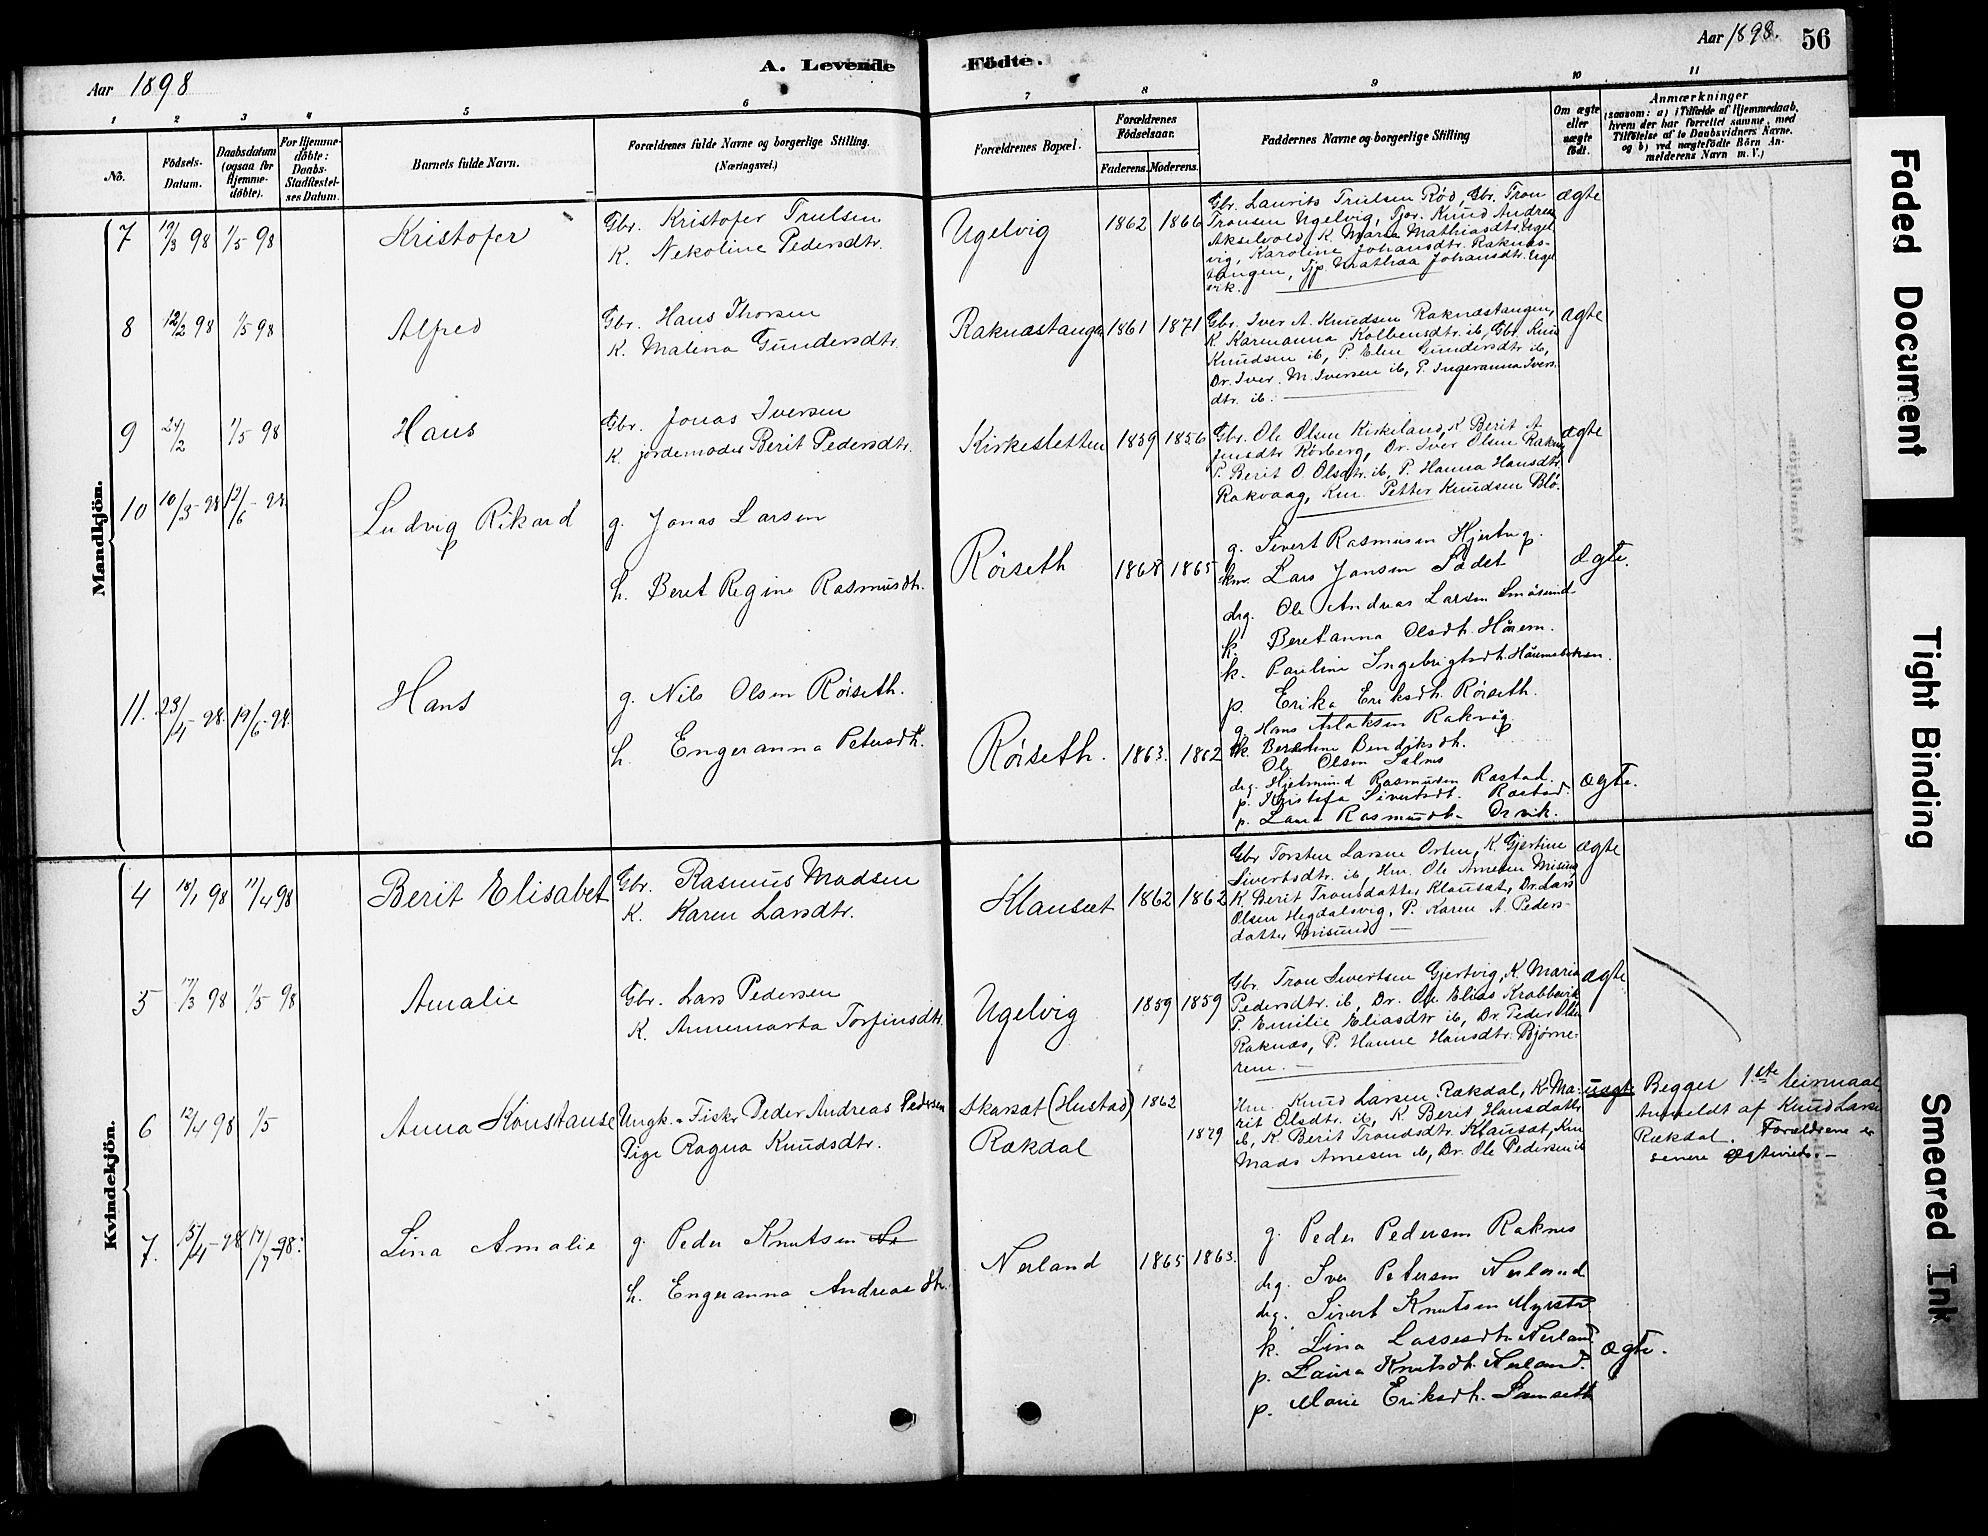 Aar 1898
A. Levende
Födte.
Aar 1898.
56
1
2
3
4
5
6
7
8
9
10
11
No.
Födsels-
Datum.
Daabsdatum
(ogsaa for
Hjemme-
döbte).
For Hjemme-
döbte:
Daabs-
Stadfæstel-
ses Datum.
Barnets fulde Navn.
Forældrenes fulde Navne og borgerlige Stilling.
(Næringsvei.)
Forældrenes Bopæl.
Forældrenes
Födselsaar.
Faderens.
Moderens.
Faddernes Navne og borgerlige Stilling
Om ægte
eller
uægte
födt.
Anmærkninger
(saasom: a) i Tilfælde af Hjemmedaab,
hvem der har forrettet samme, med
Tilföielse af to Daabsvidners Navne.
og b) ved uægtefödte Börn An-
melderens Navn m. V.)
Mandkjön.
7
98
1/5 98
Kristofer
Gbr. Kristofer Trulsen
K. Nekoline Pedersdtr.
Ugelvig
1862
1866
Gbr. Laurits Trulsen Rød, Gbr. Tron
Tronsen Ugelvig, Tjor. Knud Andreas
Akselvold, K. Maria Mathiasdtr. Ugel
vig, Karoline Johansdtr. Raknes-
tangen, Tjp. Mathea Johansdtr. Ugel
vik.
ægte
8
12/2 98
1/5 98
Alfred
Gbr. Hans Thorsen
K. Malena Gundersdtr.
Raknæstangen
1861
1871
Gbr. Iver A. Knudsen Raknæstangen,
K. Karenanna Kolbensdtr. ib, Gbr. Knud
Knudsen ib, P. Elen Gundersdtr ib,
Dr. Iver M. Iversen ib, P. Ingeranna Ivers
dtr. ib.
ægte
9
24/2
1/5 98
Hans
Gbr. Jonas Iversen
K. jordemoder Berit Pedersdtr.
Kirkesletten
1859
1856
Gbr. Ole Olsen Kirkeland, K Berit A
Jensdtr Rørberg, Dr. Iver Olsen Raknes
P. Berit O. Olsdtr. ib, P. Hanna Hansdtr.
Rakvaag, Km. Petter Knudsen Blø.
ægte
10
10/3-98
12/6-98
Ludvig Rikard
g. Jonas Larsen
h. Beret Regine Rasmusdtr.
Röiseth
1868
1865
g. Sivert Rasmusen Hjertvig.
km. Lars Jonsen Sødet
drg. Ole Andreas Larsen Småsund
k. Beretanna Olsdtr. Hårem.
k. Pauline Ingebrigtsdtr. Håremsbakken.
p. Erika Eriksdtr. Röiseth.
ægte.
11.
23/4-98.
19/6-98.
Hans
g. Nils Olsen Röiseth.
h. Engeranna Petersdtr.
Röiseth.
1863.
1862
g. Hans Aslaksen Rakvåg
k. Beretine Bendiksdtr.
Ole Olsen Talnes
drg. Hjelmund Rasmusen Rastad.
p. Kristofa Sivertsdtr. Rastad.
p. Laura Rasmusdtr. Orvik.
ægte.
Kvindekjön.
4
18/1 98
11/4 98
Berit Elisabet
Gbr. Rasmus Madsen
K. Karen Larsdtr.
Klausæt
1862
1862
Gbr Torsten Larsen Orten, K. Gjertine
Sivertsdtr. ib, Hm. Ole Arnesen Misund
K Berit Tronsdatter Klausæt, Dr. Lars
Olsen Hegdalsvig, P. Karen A. Peders-
datter Misund
ægte
5
17/3 98
1/5 98
Amalie
Gbr. Lars Pedersen
K. Annemarta Torfinsdtr.
Ugelvig
1859
1859
Gbr. Tron Sivertsen Gjertvig, K. Maria
Pedersdtr. ib, Dr. Ole Elias Krabbevik
P. Emilie Eliasdtr ib, Dr. Peder Olsen
Raknæs, P. Hanne Hansdtr. Bjørne-
rem.
ægte
6
12/4 98
1/5
Anna Konstanse
Ungk. Fisker Peder Andreas Pedersen
Pige Ragna Knudsdtr.
Skarsæt (Hustad)
Rækdal
1862
1879
Hm. Knud Larsen Rækdal, K. Ma-
rit Olsdtr. ib, K Berit Hansdatter
ib, K Berit Trondsdtr. Klausæt, Km
Mads Arnesen ib, Dr. Ole Pedersen ib
uægte
Begges 1.ste leirmaal
Anmeldt af Knud Larsen
Rækdal. Forældrene er
senere ægteviede.
7.
15/4-98
17/7-98.
Lina Amalie
g. Peder Knutsen
h. Engeranna Andreasdtr.
Nerland
1865
1863.
g. Peder Pedersen Raknes
drg. Iver Petersen Nerland
drg. Sivert Knutsen Myrstad
k. Lina Lassesdtr. Nerland
p. Laura Knutsdtr. Nerland.
p. Marie Eriksdtr. Sandseth
ægte.
Faded Document
Tight Binding
Smeared Ink